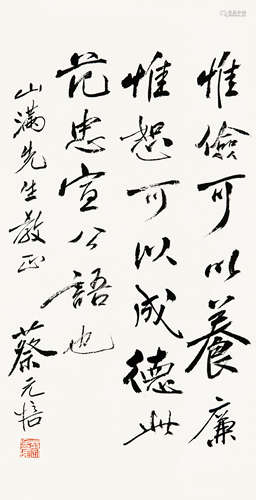 惟儉可以養廉
惟恕可以成德此
范忠宣公語也
山滿先生教正
蔡元培